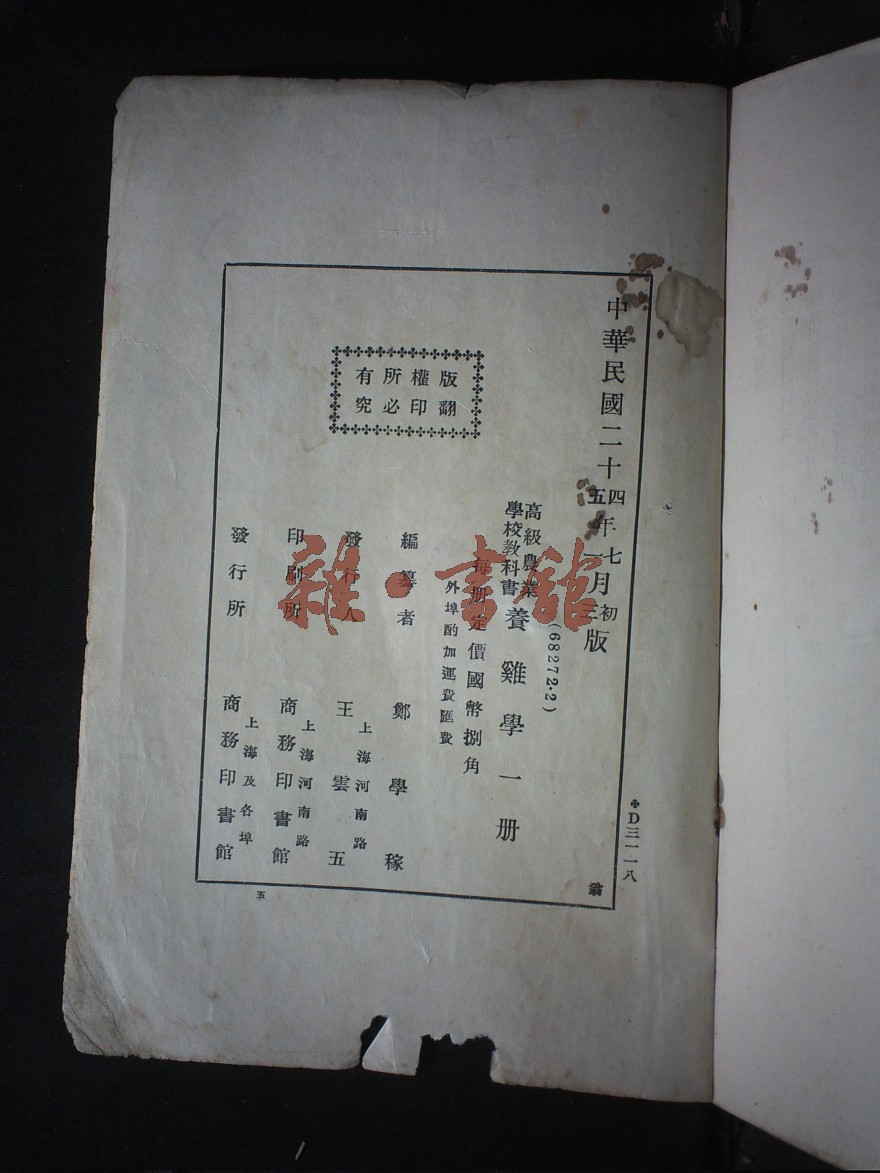 中華民國二十四年七月初版
五年一月三版
(68272·2)
高級農業
學校教科書
養雞學一册
每册定價國幣捌角
外埠酌加運費匯費
編纂者 鄭學稼
發行人 王雲五
上海河南路
印刷所 商務印書館
上海河南路
發行所 商務印書館
上海及各埠
版權所有
翻印必究
D三一一八
五
雜·書館